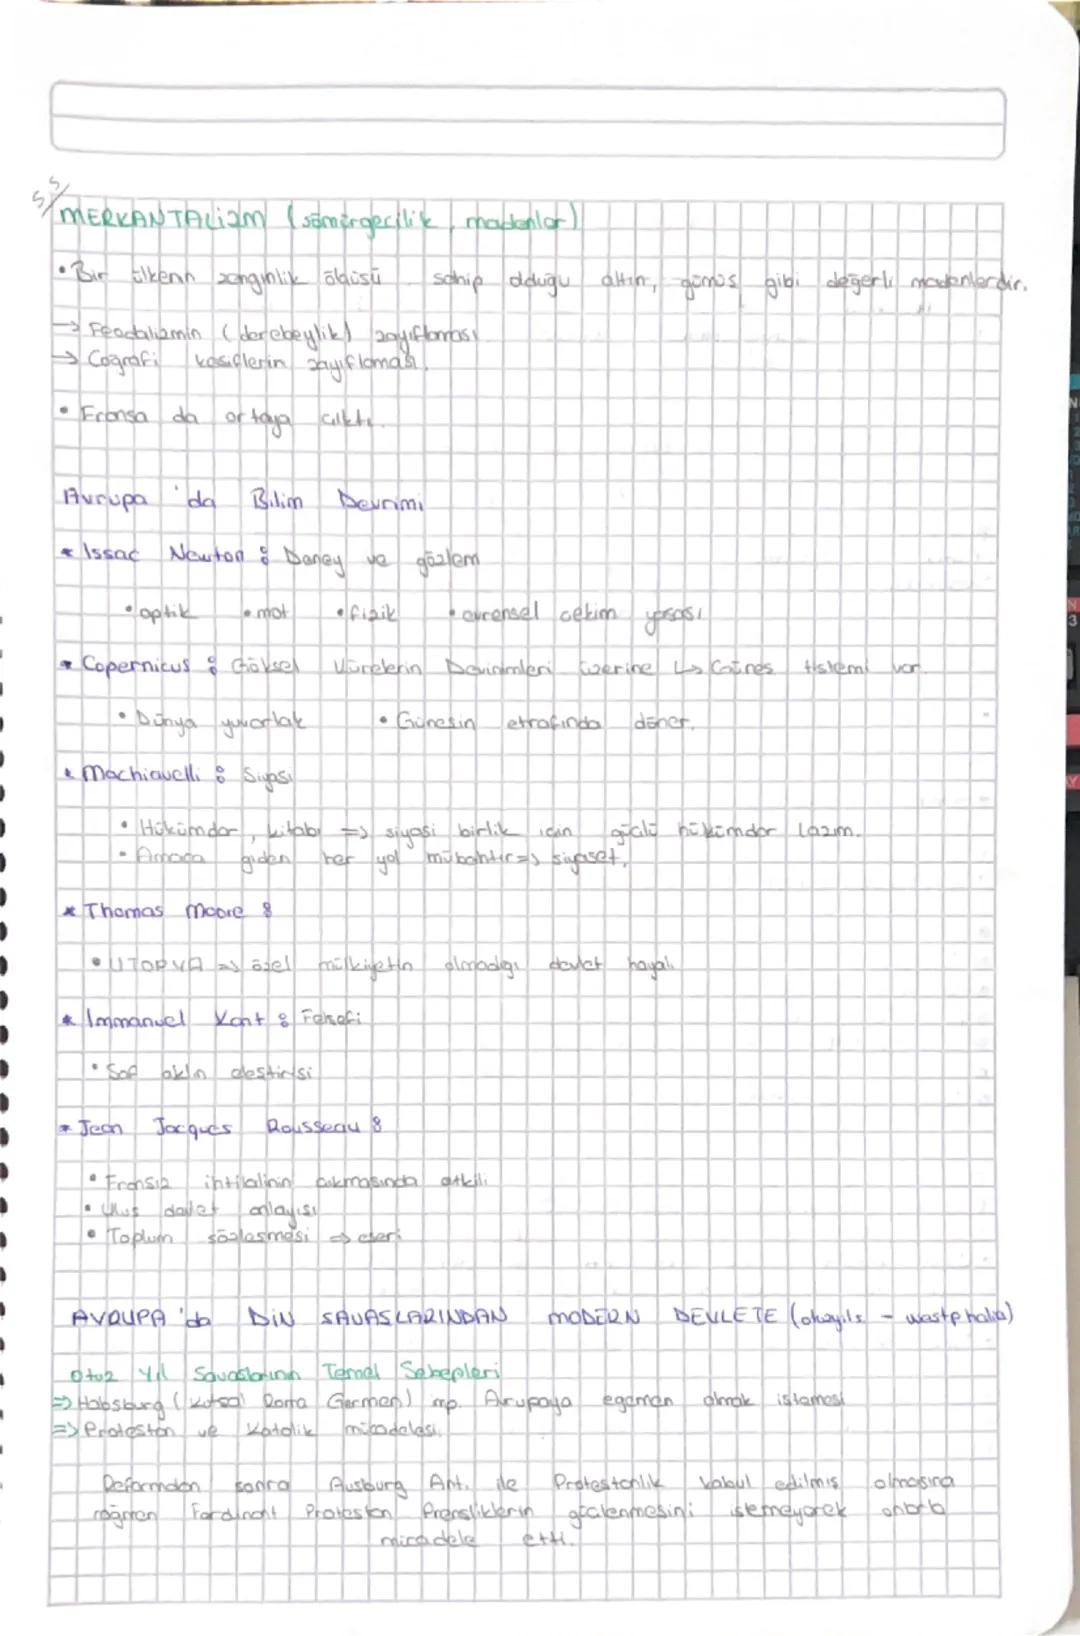 MERKANTALİZM (sömürgecilik, madenler)
• Bir ülkenin zenginlik ölçüsü sahip olduğu altın, gümüş gibi değerli madenlerdir.
→ Feodalizmin (derebeylik) zayıflaması
→ Coğrafi keşiflerin zayıflaması.
• Fransa da ortaya çıktı.
Avrupa 'da Bilim Devrimi
* Issac Newton : Deney ve gözlem
• optik • mat • fizik • evrensel çekim yasası
* Copernicus : Göksel Kürelerin Devinimleri üzerine ↳ Güneş sistemi var.
• Dünya yuvarlak • Güneşin etrafında döner.
* Machiavelli : Siyasi
• Hükümdar, kitabı => siyasi birlik için güçlü hükümdar lazım.
• Amaca giden her yol mübahtır => siyaset.
* Thomas Moore :
• UTOPYA => özel mülkiyetin olmadığı devlet hayali
* Immanuel Kant : Felsefi
• Saf aklın eleştirisi
* Jean Jacques Rousseau :
• Fransız ihtilalinin çıkmasında etkili
• Ulus devlet anlayışı
• Toplum sözleşmesi => eseri
AVRUPA 'da DİN SAVAŞLARINDAN MODERN DEVLETE (otuzyıls - westphalia)
Otuz Yıl Savaşlarının Temel Sebepleri
=> Habsburg (Kutsal Roma Germen) imp. Avrupaya egemen olmak istemesi
=> Protestan ve Katolik mücadelesi.
Reformdan sonra Ausburg Ant. ile Protestanlık kabul edilmiş olmasına
rağmen Ferdinant Protestan Prensliklerin güçlenmesini istemeyerek onlarla
mücadele etti.